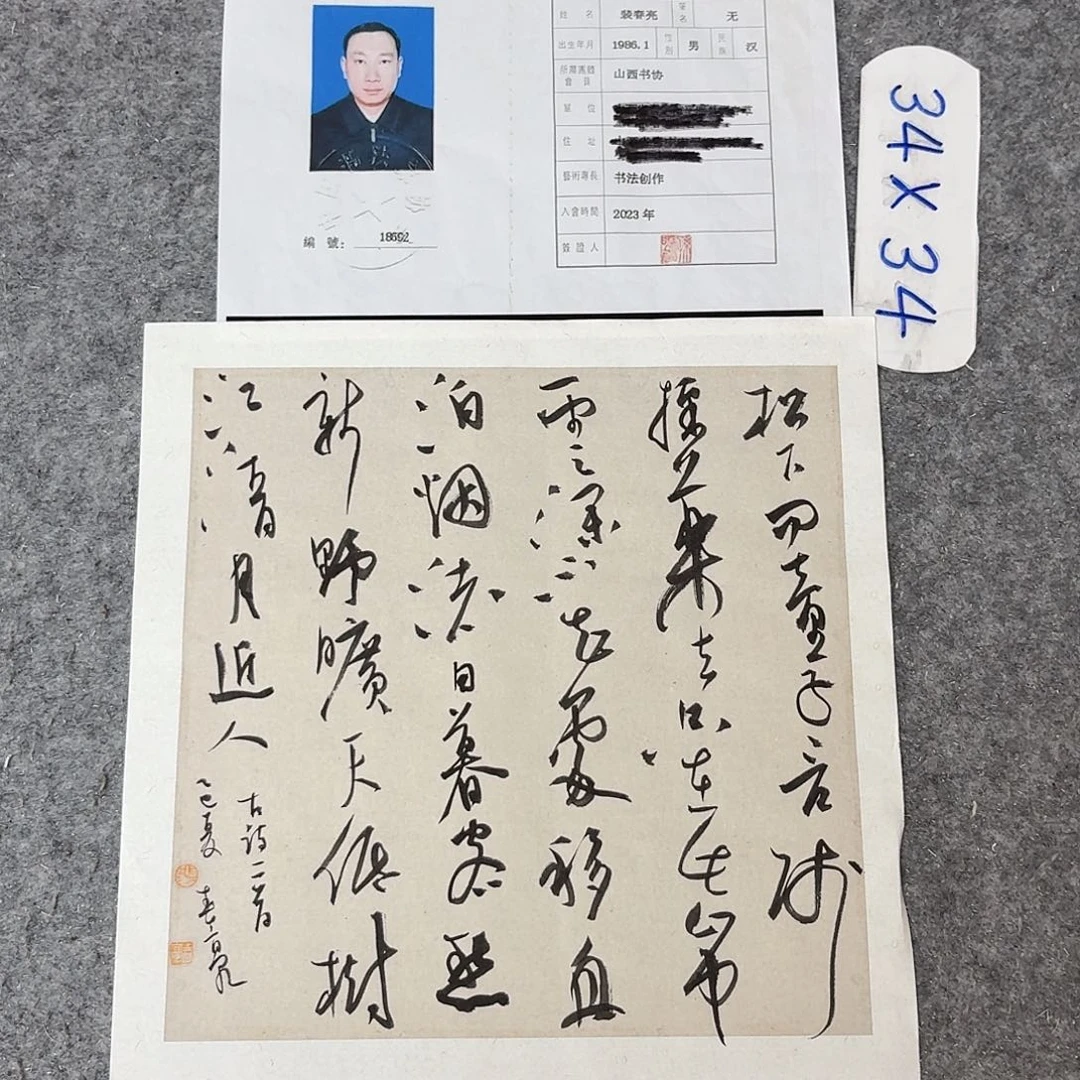 姓名 裴春亮 筆名 无
出生年月 1986.1 性别 男 民族 汉
所屬團體會員 山西书协
單位
住址
藝術專長 书法创作
入會時間 2023 年
簽證人
編號: 18692
34 X 34
松下問童子言师
採藥去只在此山中
雲深不知處移舟
泊烟渚日暮客愁
新野曠天低樹
江清月近人
古詩二首
乙巳夏 春亮